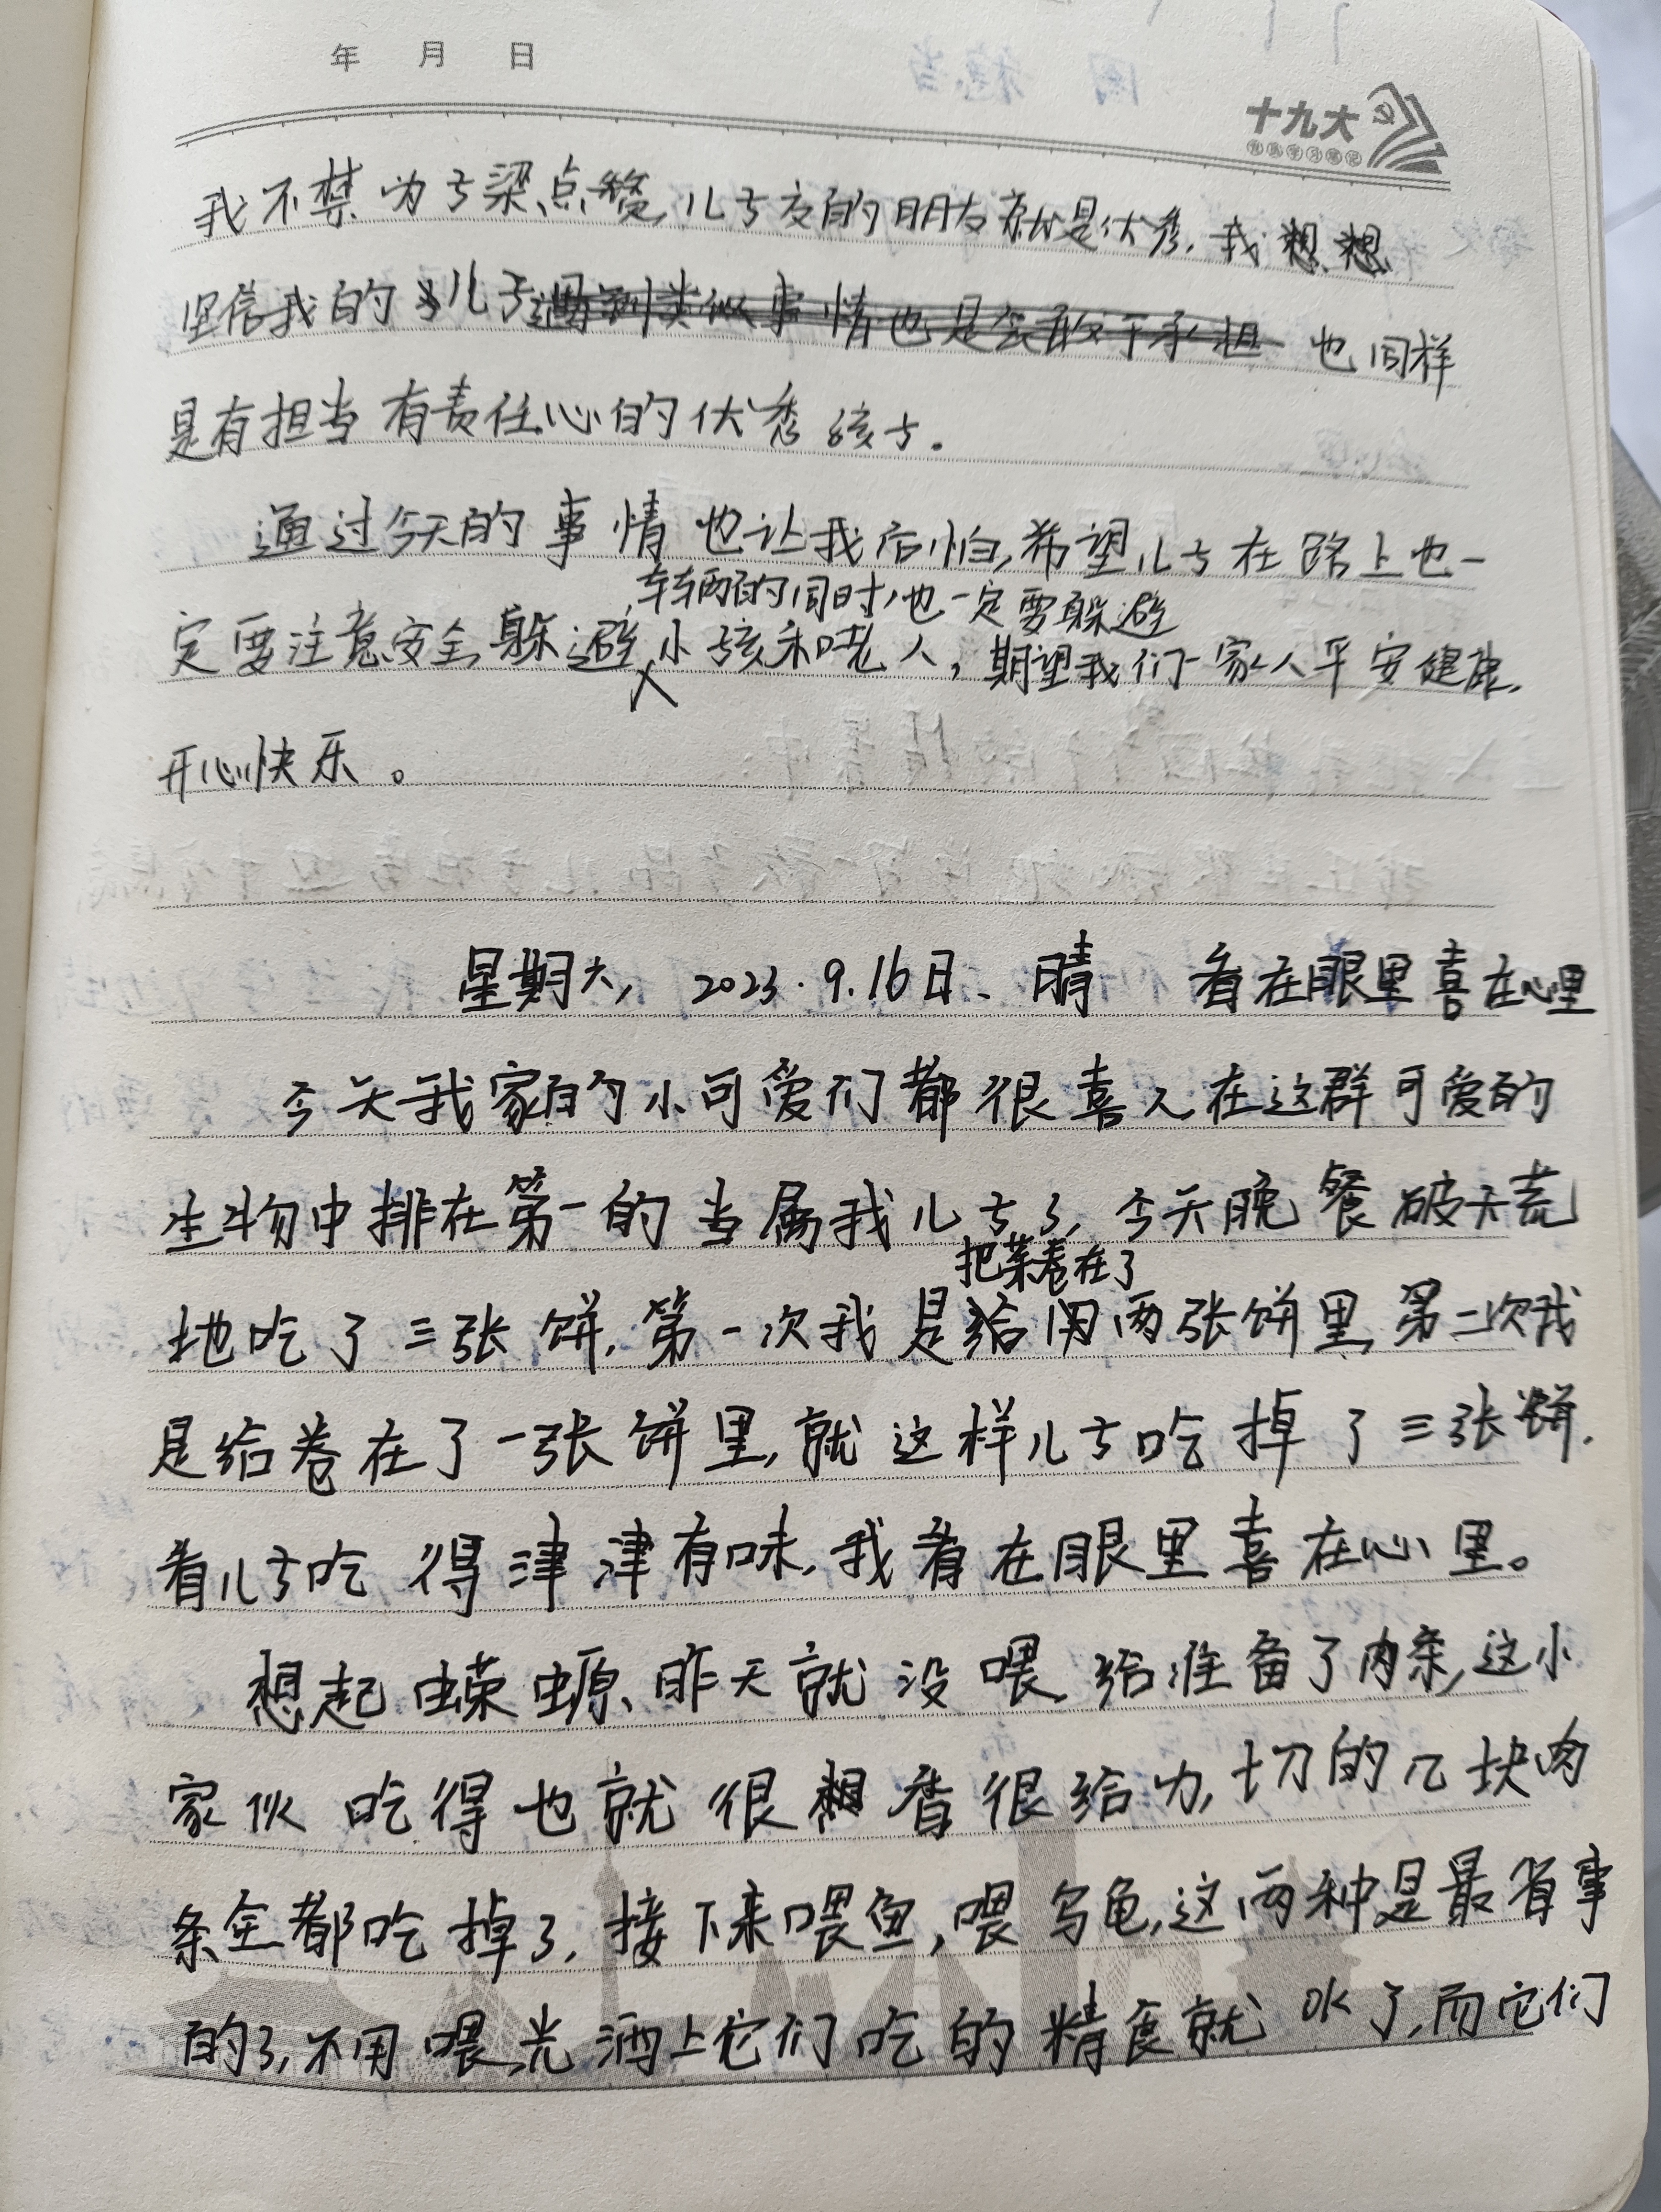 年 月 日
十九大
我不禁为子梁点赞,儿子交的朋友就是优秀,我想想
坚信我的儿子遇到类似事情也是会敢于承担也同样
是有担当有责任心的优秀孩子.
通过今天的事情也让我后怕,希望儿子在路上也一
车辆的同时,也一定要躲避
定要注意安全,躲避小孩和老人,期望我们一家人平安健康,
开心快乐。
星期六, 2023.9.16日、晴 看在眼里喜在心里
今天我家的小可爱们都很喜人在这群可爱的
生物中排在第一的当属我儿子了,今天晚餐破天荒
把菜卷在了
地吃了三张饼,第一次我是给用两张饼里,第二次我
是给卷在了一张饼里,就这样儿子吃掉了三张饼.
看儿子吃得津津有味,我看在眼里喜在心里。
想起蝾螈、昨天就没喂,给准备了肉条,这小
家伙吃得也就很想香很给力,切的几块肉
条全都吃掉了,接下来喂鱼,喂乌龟,这两种是最省事
的了,不用喂,光洒上它们吃的精食就OK了,而它们